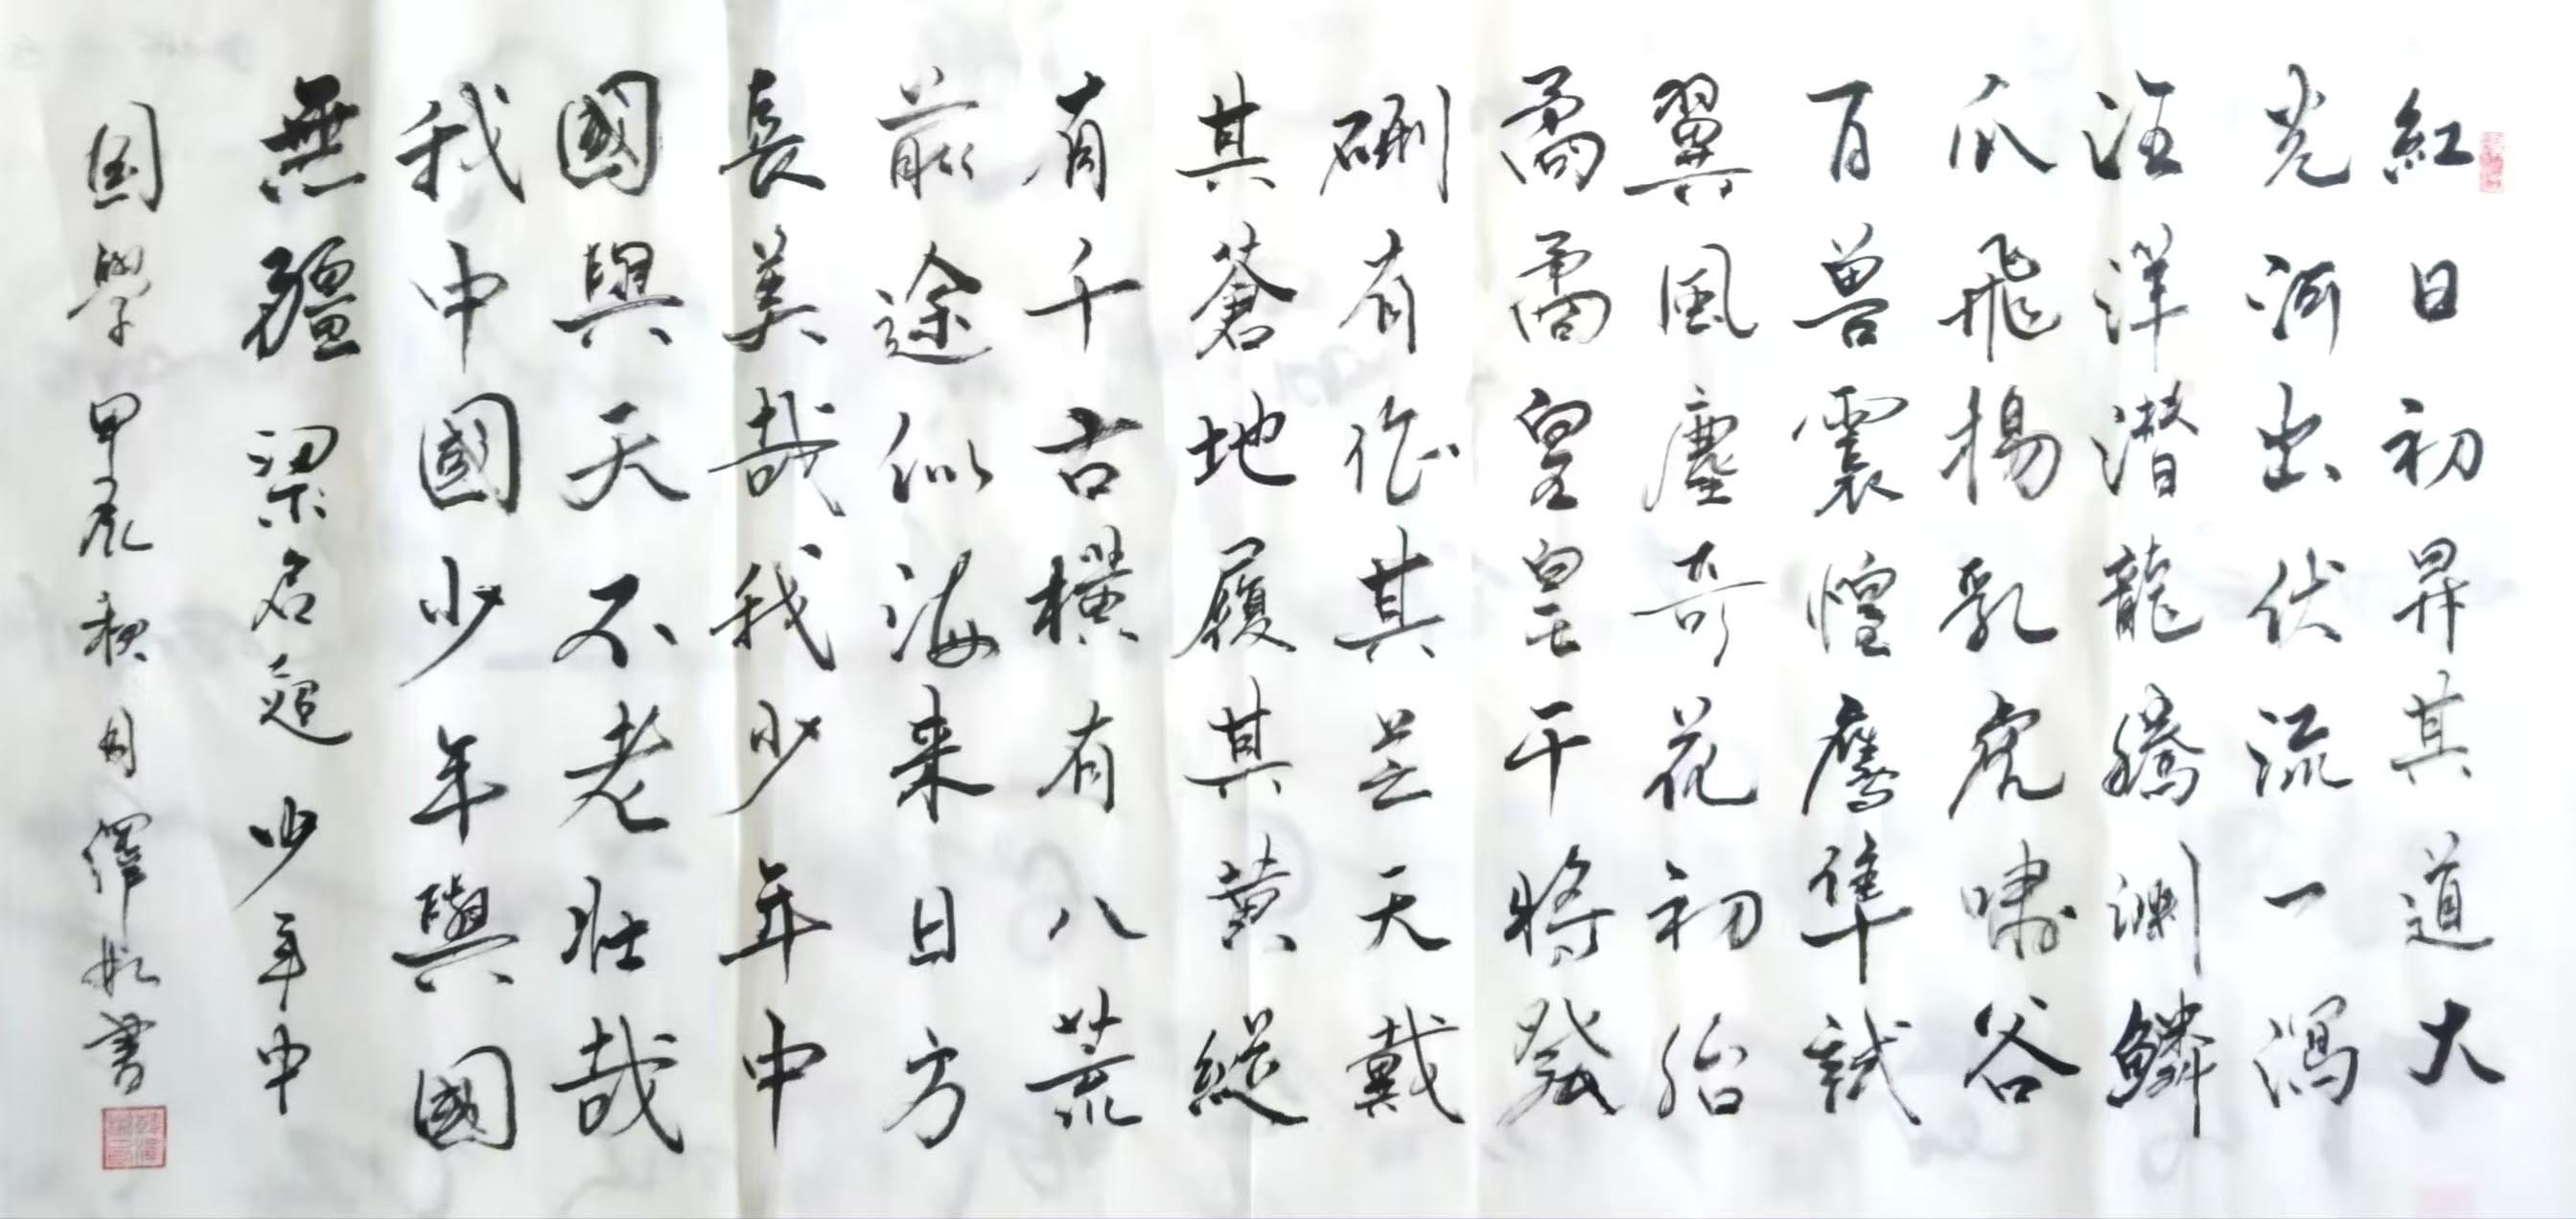 紅日初昇其道大
光河出伏流一瀉
汪洋潜龍騰渊鱗
爪飛揚乳虎嘯谷
百兽震惶鷹隼試
翼風塵奇花初胎
矞矞皇皇干將發
硎有作其芒天戴
其蒼地履其黄縱
有千古橫有八荒
前途似海来日方
長美哉我少年中
國與天不老壯哉
我中國少年與國
無疆 梁启超 少年中
国學 甲辰秋月 澤書